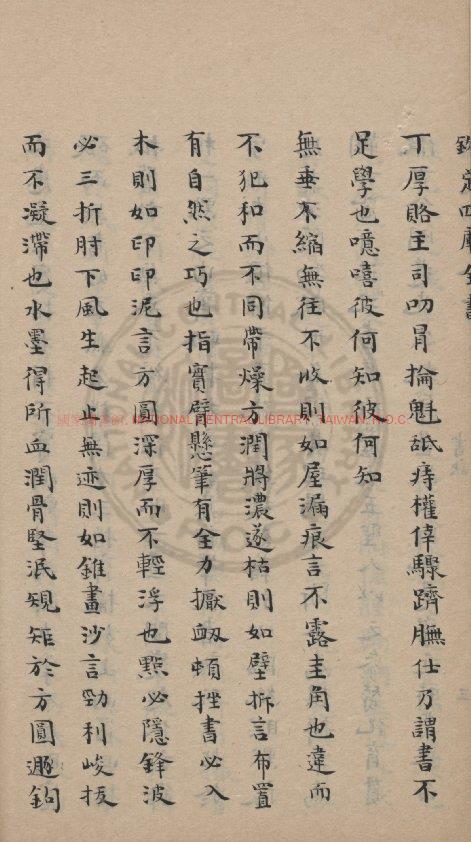 欽定四庫全書
丁厚賂主司叨冒掄魁舐痔權倖驟躋膴仕乃謂書不
足學也噫嘻彼何知彼何知
無垂不縮無往不收則如屋漏痕言不露圭角也違而
不犯和而不同帶燥方潤將濃遂枯則如壁拆言布置
有自然之巧也指實臂懸筆有全力擫衄頓挫書必入
木則如印印泥言方圓深厚而不輕浮也點必隱鋒波
必三折肘下風生起止無迹則如錐畫沙言勁利峻拔
而不凝滯也水墨得所血潤骨堅泯規矩於方圓遯鉤
國家圖書館, NATIONAL CENTRAL LIBRARY, TAIWAN, R.O.C